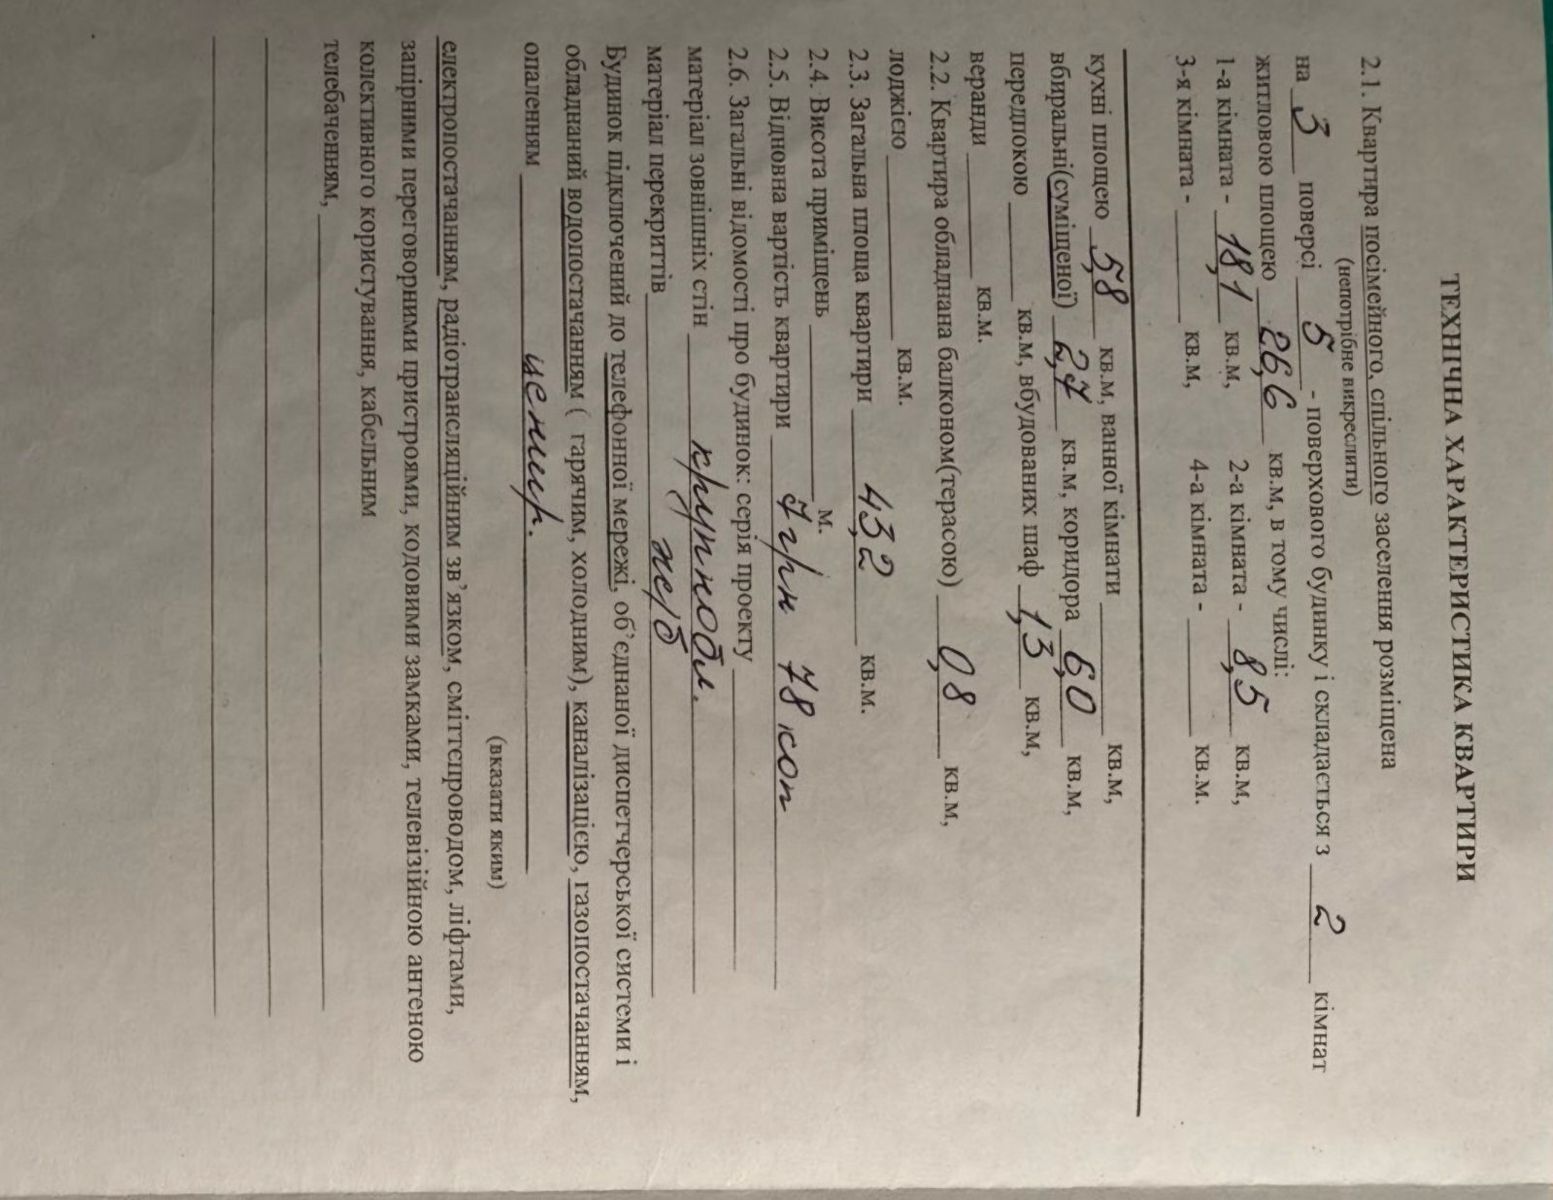 ТЕХНІЧНА ХАРАКТЕРИСТИКА КВАРТИРИ
2.1. Квартира посімейного, спільного заселення розміщена
(непотрібне викреслити)
на 3 поверсі 5 - поверхового будинку і складається з 2 кімнат
житловою площею 26,6 кв.м, в тому числі:
1-а кімната - 18,1 кв.м, 2-а кімната - 8,5 кв.м,
3-я кімната - ______ кв.м, 4-а кімната - ______ кв.м.
кухні площею 5,8 кв.м, ванної кімнати ______ кв.м,
вбиральні(суміщеної) 2,7 кв.м, коридора 6,0 кв.м,
передпокою ______ кв.м, вбудованих шаф 1,3 кв.м,
веранди ______ кв.м.
2.2. Квартира обладнана балконом(терасою) 0,8 кв.м,
лоджією ______ кв.м.
2.3. Загальна площа квартири 43,2 кв.м.
2.4. Висота приміщень ______ м.
2.5. Відновна вартість квартири 7 грн 78 коп
2.6. Загальні відомості про будинок: серія проекту ______
матеріал зовнішніх стін крупнобл.
матеріал перекриттів ж/б
Будинок підключений до телефонної мережі, об’єднаної диспетчерської системи і
обладнаний водопостачанням ( гарячим, холодним), каналізацією, газопостачанням,
опаленням центр.
(вказати яким)
електропостачанням, радіотрансляційним зв’язком, сміттєпроводом, ліфтами,
запірними переговорними пристроями, кодовими замками, телевізійною антеною
колективного користування, кабельним
телебаченням, ______